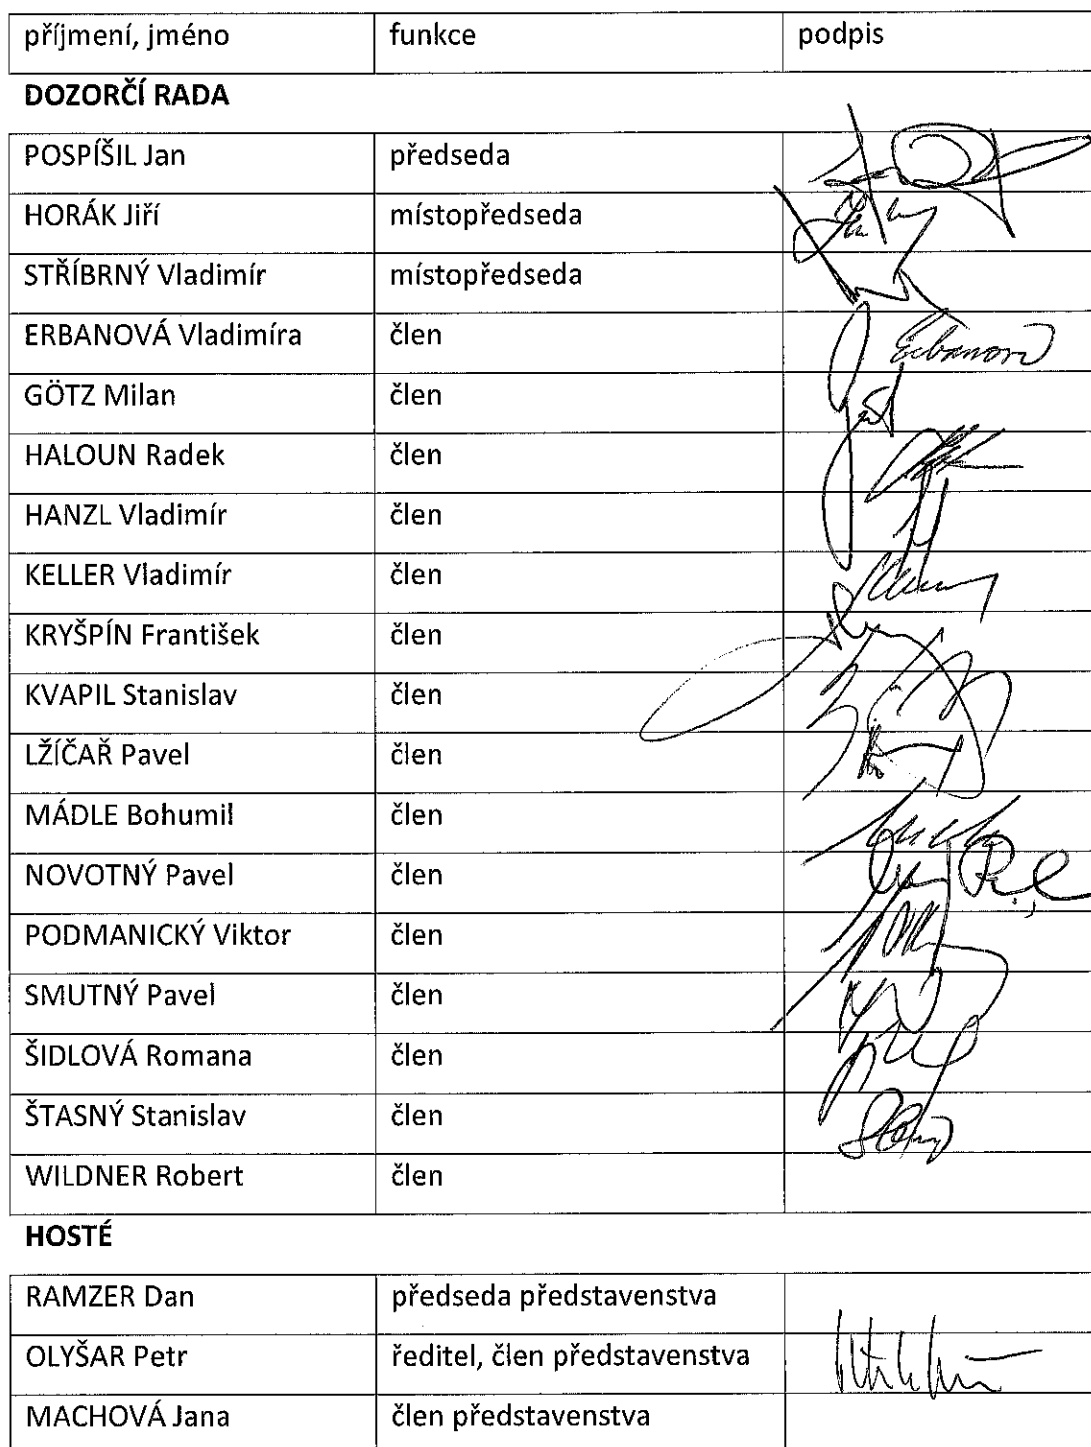 příjmení, jméno funkce podpis
DOZORČÍ RADA
POSPÍŠIL Jan předseda
HORÁK Jiří místopředseda
STŘÍBRNÝ Vladimír místopředseda
ERBANOVÁ Vladimíra člen Erbanová
GÖTZ Milan člen
HALOUN Radek člen
HANZL Vladimír člen
KELLER Vladimír člen
KRYŠPÍN František člen
KVAPIL Stanislav člen
LŽÍČAŘ Pavel člen
MÁDLE Bohumil člen
NOVOTNÝ Pavel člen
PODMANICKÝ Viktor člen
SMUTNÝ Pavel člen
ŠIDLOVÁ Romana člen
ŠTASNÝ Stanislav člen
WILDNER Robert člen
HOSTÉ
RAMZER Dan předseda představenstva
OLYŠAR Petr ředitel, člen představenstva
MACHOVÁ Jana člen představenstva